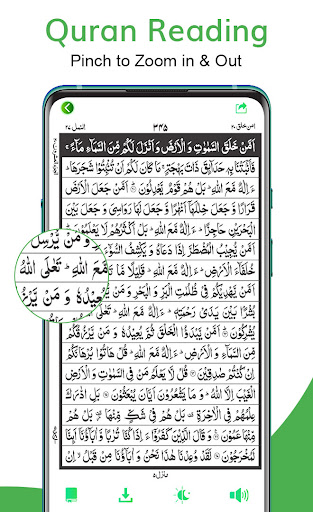 Quran Reading
Pinch to Zoom in & Out
النمل ٢٧ ٣٤٥ امن خلق ٢٠
اَمَّنْ خَلَقَ السَّمٰوٰتِ وَ الْاَرْضَ وَ اَنْزَلَ لَكُمْ مِّنَ السَّمَآءِ مَآءً
فَاَنْۢبَتْنَا بِهٖ حَدَآىِٕقَ ذَاتَ بَهْجَةٍ مَا كَانَ لَكُمْ اَنْ تُنْۢبِتُوْا شَجَرَهَا
ءَاِلٰهٌ مَّعَ اللّٰهِ بَلْ هُمْ قَوْمٌ يَّعْدِلُوْنَ اَمَّنْ جَعَلَ الْاَرْضَ
قَرَارًا وَّ جَعَلَ خِلٰلَهَاۤ اَنْهٰرًا وَّ جَعَلَ لَهَا رَوَاسِيَ وَ جَعَلَ بَيْنَ
الْبَحْرَيْنِ حَاجِزًا ءَاِلٰهٌ مَّعَ اللّٰهِ بَلْ اَكْثَرُهُمْ لَا يَعْلَمُوْنَ
اَمَّنْ يُّجِيْبُ الْمُضْطَرَّ اِذَا دَعَاهُ وَ يَكْشِفُ السُّوْٓءَ
خُلَفَآءَ الْاَرْضِ ءَاِلٰهٌ مَّعَ اللّٰهِ قَلِيْلًا مَّا
اَمَّنْ يَّهْدِيْكُمْ فِيْ ظُلُمٰتِ الْبَرِّ وَ الْبَحْرِ وَ مَنْ
وَ مَنْ يُّرْسِلُ
مَّعَ اللّٰهِ تَعٰلَى اللّٰهُ
يُعِيْدُهٗ وَ مَنْ يَّرْزُ
بُشْرًۢا بَيْنَ يَدَيْ رَحْمَتِهٖ
يُشْرِكُوْنَ اَمَّنْ يَّبْدَؤُا الْخَلْقَ ثُمَّ يُعِيْدُهٗ وَ مَنْ
مِّنَ السَّمَآءِ وَ الْاَرْضِ ءَاِلٰهٌ مَّعَ اللّٰهِ قُلْ هَاتُوْا بُرْهَانَكُمْ
اِنْ كُنْتُمْ صٰدِقِيْنَ قُلْ لَّا يَعْلَمُ مَنْ فِي السَّمٰوٰتِ وَ الْاَرْضِ
الْغَيْبَ اِلَّا اللّٰهُ وَ مَا يَشْعُرُوْنَ اَيَّانَ يُبْعَثُوْنَ بَلِ ادّٰرَكَ
عِلْمُهُمْ فِي الْاٰخِرَةِ بَلْ هُمْ فِيْ شَكٍّ مِّنْهَا بَلْ هُمْ
مِّنْهَا عَمُوْنَ وَ قَالَ الَّذِيْنَ كَفَرُوْۤا ءَاِذَا كُنَّا تُرٰبًا وَّ اٰبَآؤُنَاۤ اَىِٕنَّا
لَمُخْرَجُوْنَ لَقَدْ وُعِدْنَا هٰذَا نَحْنُ وَ اٰبَآؤُنَا مِنْ قَبْلُ اِنْ
منزل ٥